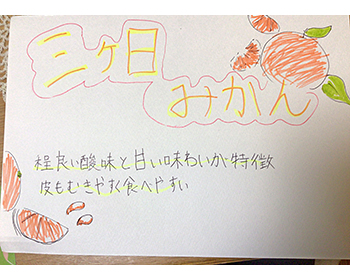 三ヶ日
みかん
程良い酸味と甘い味わいが特徴
皮もむきやすく食べやすい